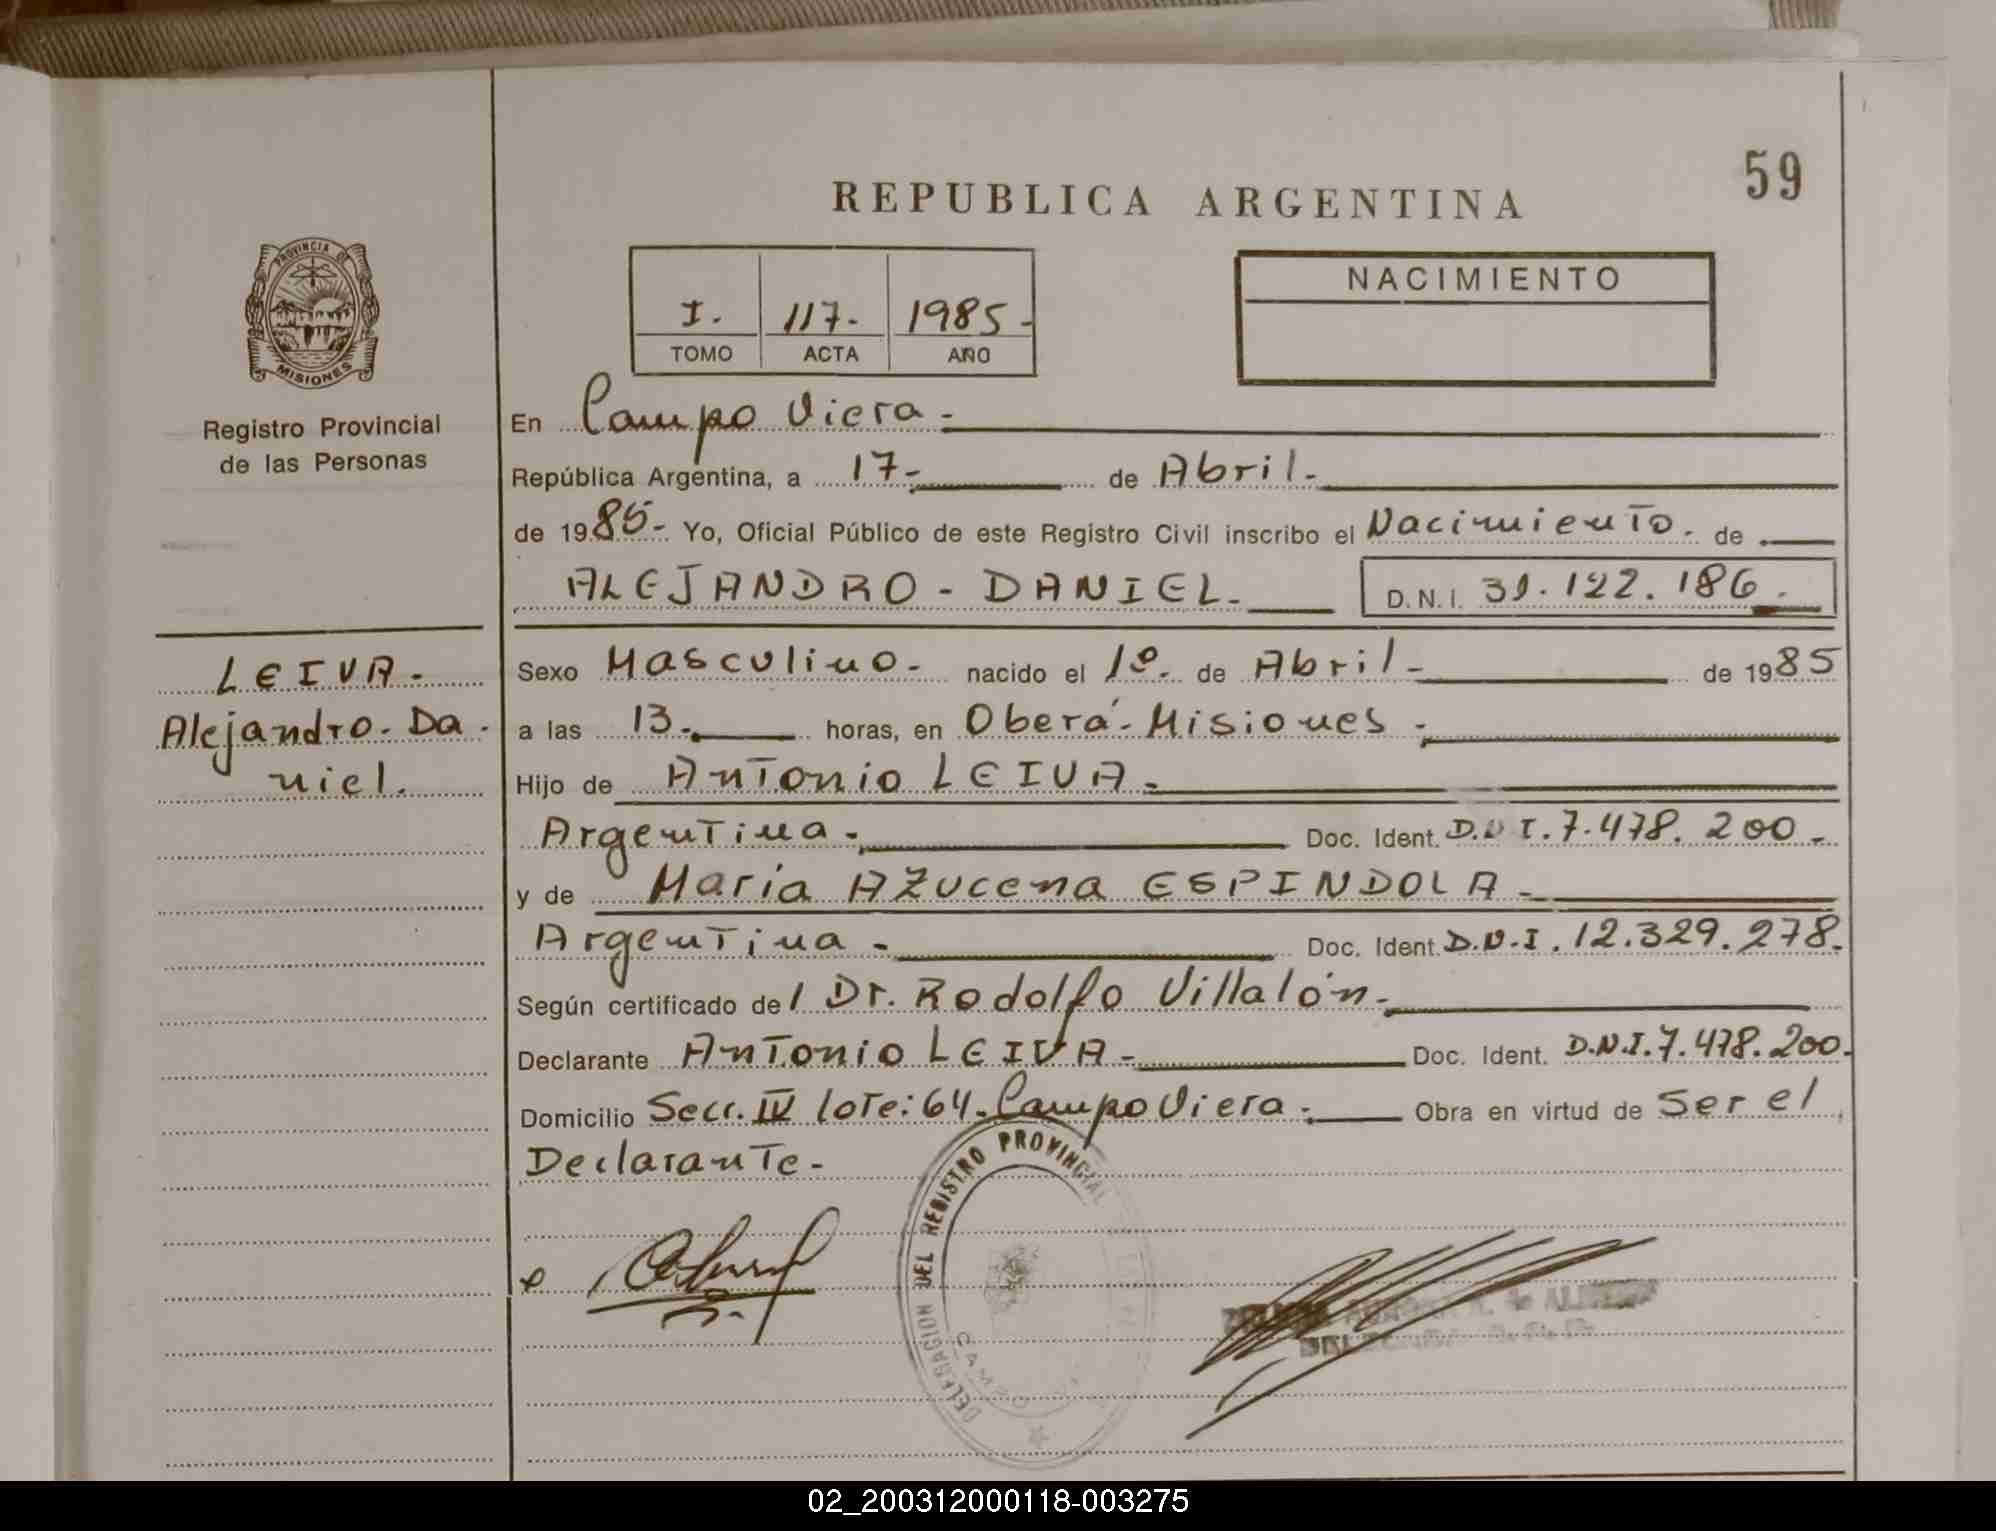 59
REPUBLICA ARGENTINA
PROVINCIA DE
MISIONES
Registro Provincial
de las Personas
I. 117. 1985.
TOMO ACTA AÑO
NACIMIENTO
En Campo Viera.
República Argentina, a 17. de Abril.
de 1985. Yo, Oficial Público de este Registro Civil inscribo el Nacimiento. de
ALEJANDRO - DANIEL. D.N.I. 31.122.186.
LEIVA.
Alejandro. Da.
niel.
Sexo Masculino. nacido el 1º. de Abril. de 1985
a las 13. horas, en Oberá - Misiones.
Hijo de Antonio LEIVA.
Argentina. Doc. Ident. D.N.I. 7.478.200.
y de María Azucena ESPINDOLA.
Argentina. Doc. Ident. D.N.I. 12.329.278.
Según certificado del Dr. Rodolfo Villalón.
Declarante Antonio LEIVA. Doc. Ident. D.N.I. 7.478.200.
Domicilio Secc. IV lote: 64. Campo Viera. Obra en virtud de ser el
Declarante.
DELEGACION DEL REGISTRO PROVINCIAL
CAMPO
02_200312000118-003275